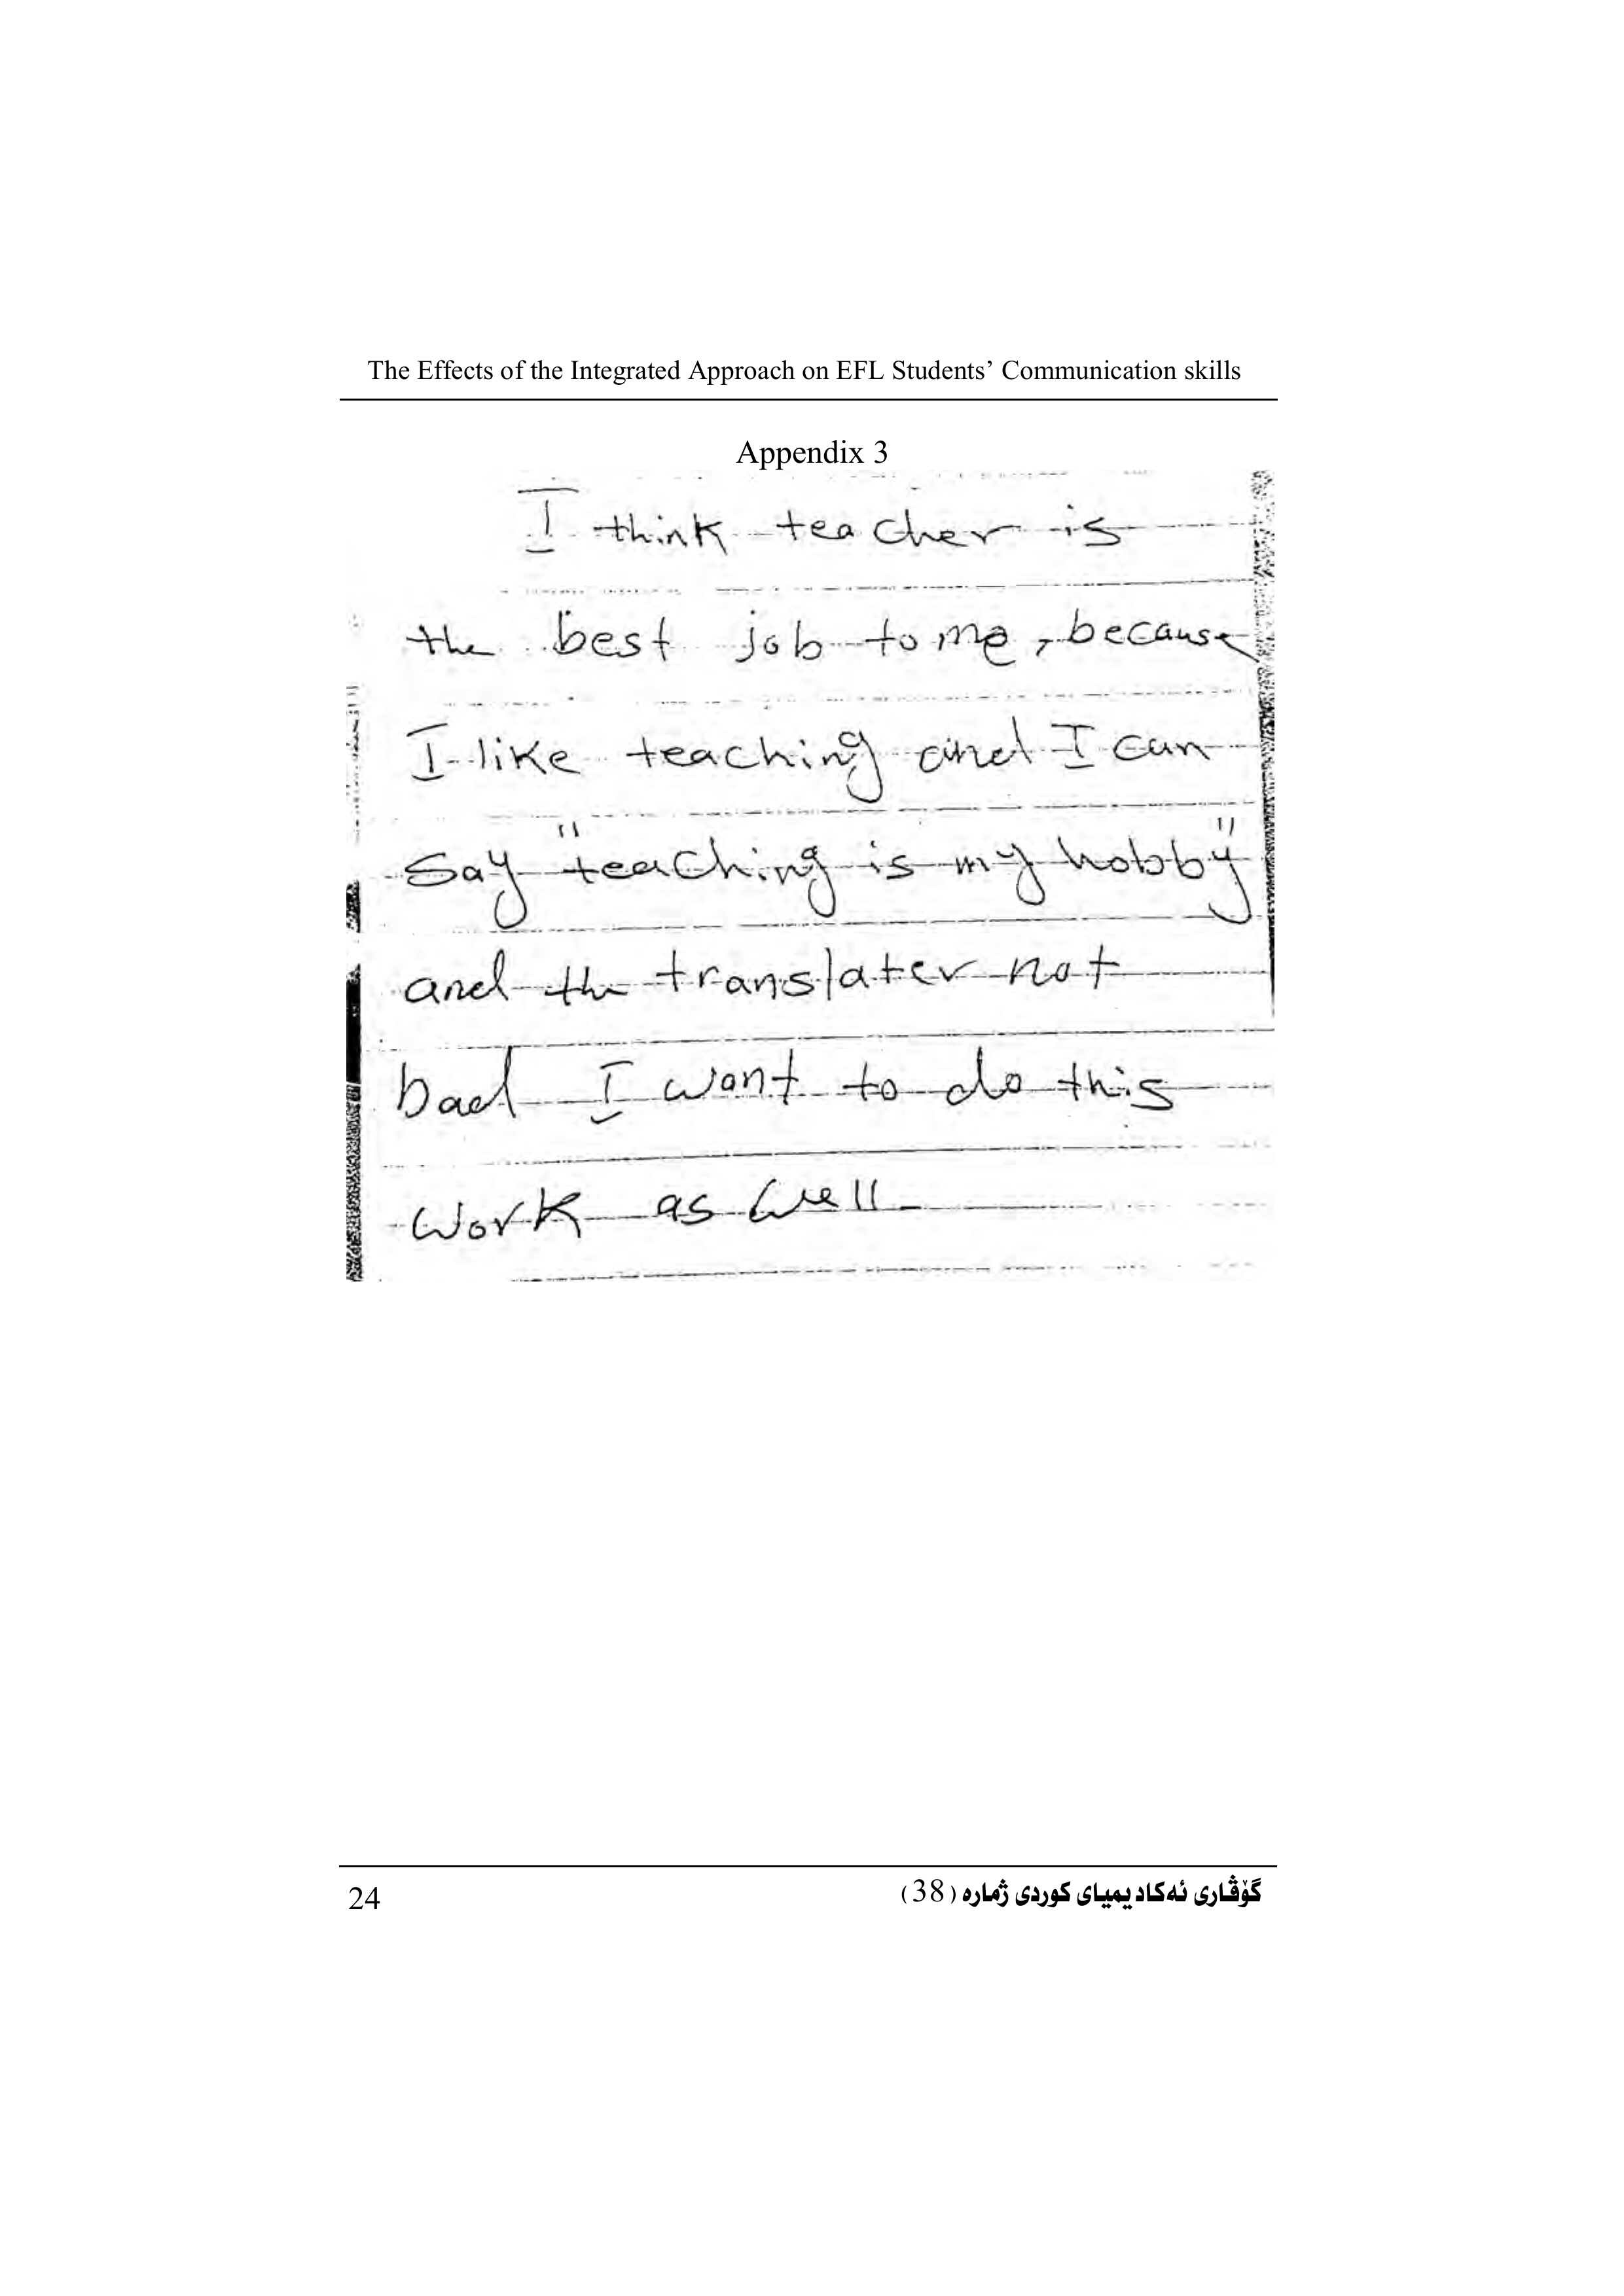 The Effects of the Integrated Approach on EFL Students’ Communication skills
Appendix 3
I think teacher is
the best job to me, because
I like teaching and I can
say "teaching is my hobby"
and the translater not
bad I want to do this
work as well.
24
گۆڤاری ئەکادیمیای کوردی ژمارە (38)